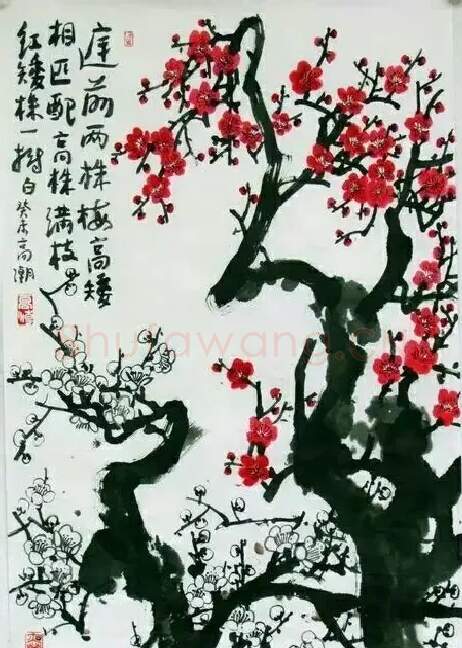 庭前两株梅高矮
相匹配高株满枝
红矮株一樹白 癸未高潮
Shufawang.cn